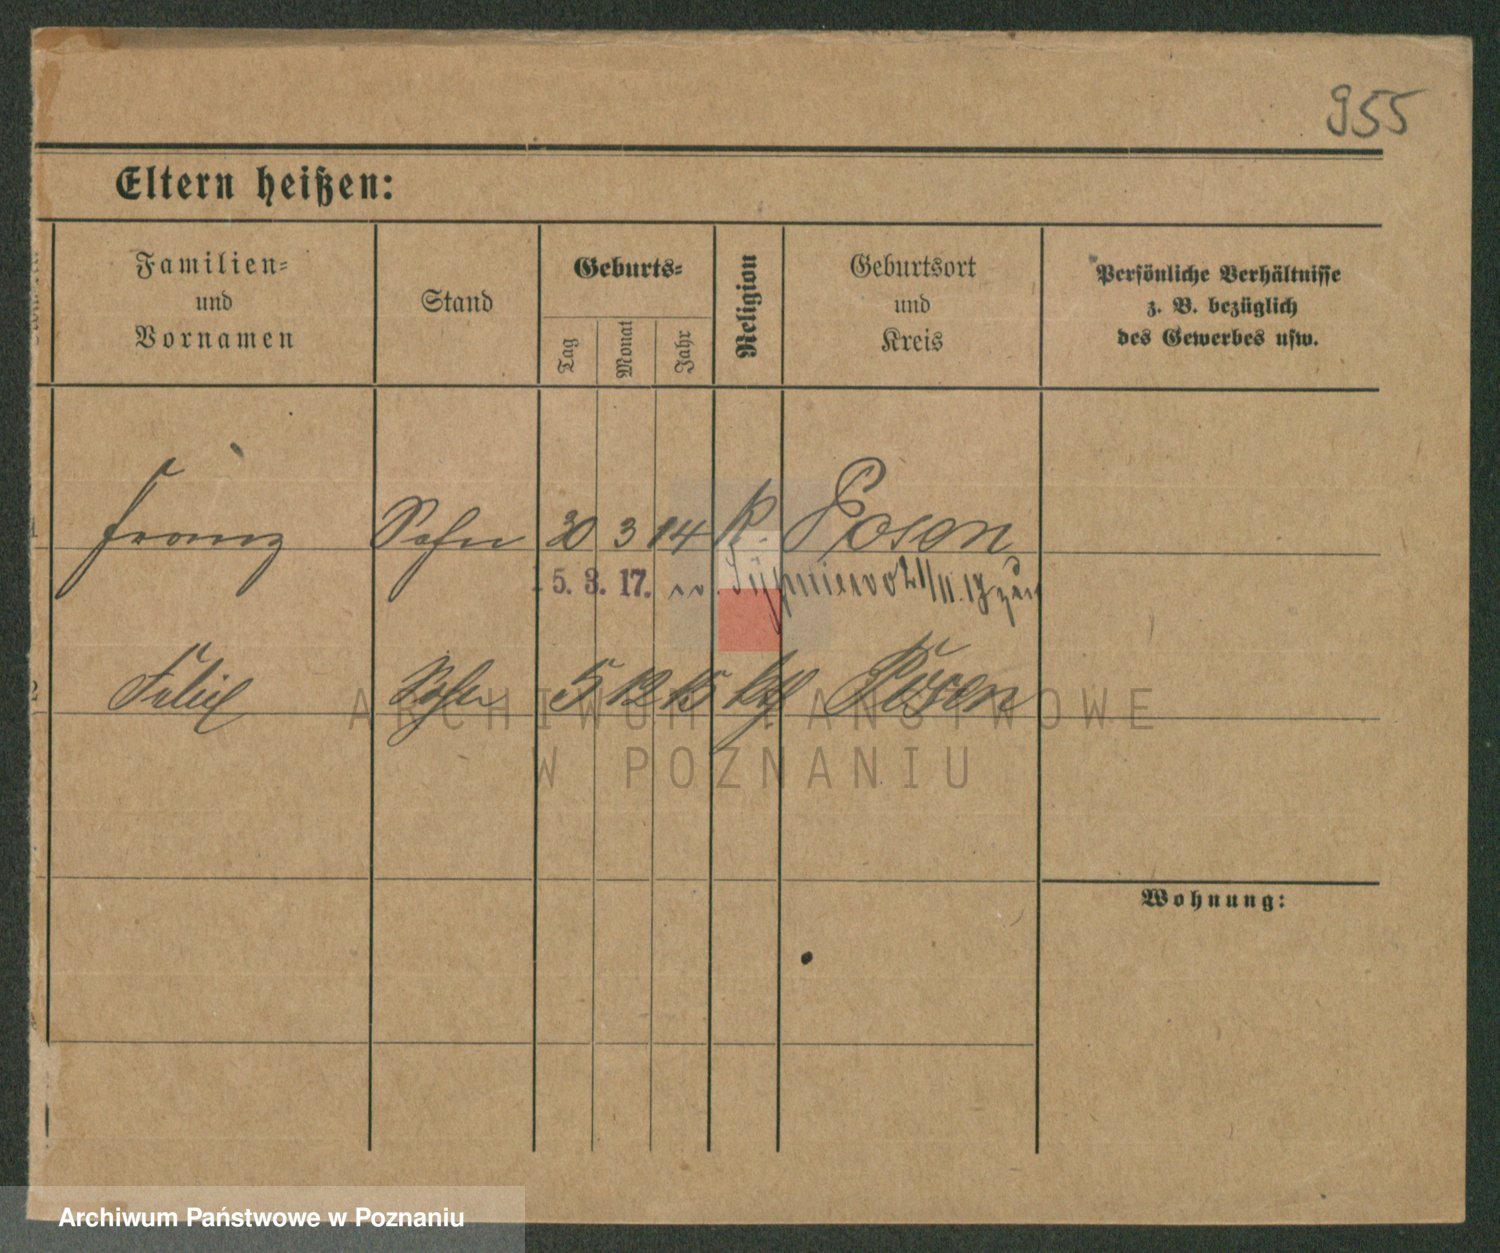 955
Eltern heißen:
Familien=
und
Vornamen
Stand
Geburts=
Tag
Monat
Jahr
Religion
Geburtsort
und
Kreis
Persönliche Verhältnisse
z. B. bezüglich
des Gewerbes usw.
1 Franz Sohn 20 3 14 K. Posen
5. 3. 17. 21/11.17
2 Felix Sohn 5 12 15 kth Posen
ARCHIWUM PAŃSTWOWE
W POZNANIU
Wohnung:
Archiwum Państwowe w Poznaniu